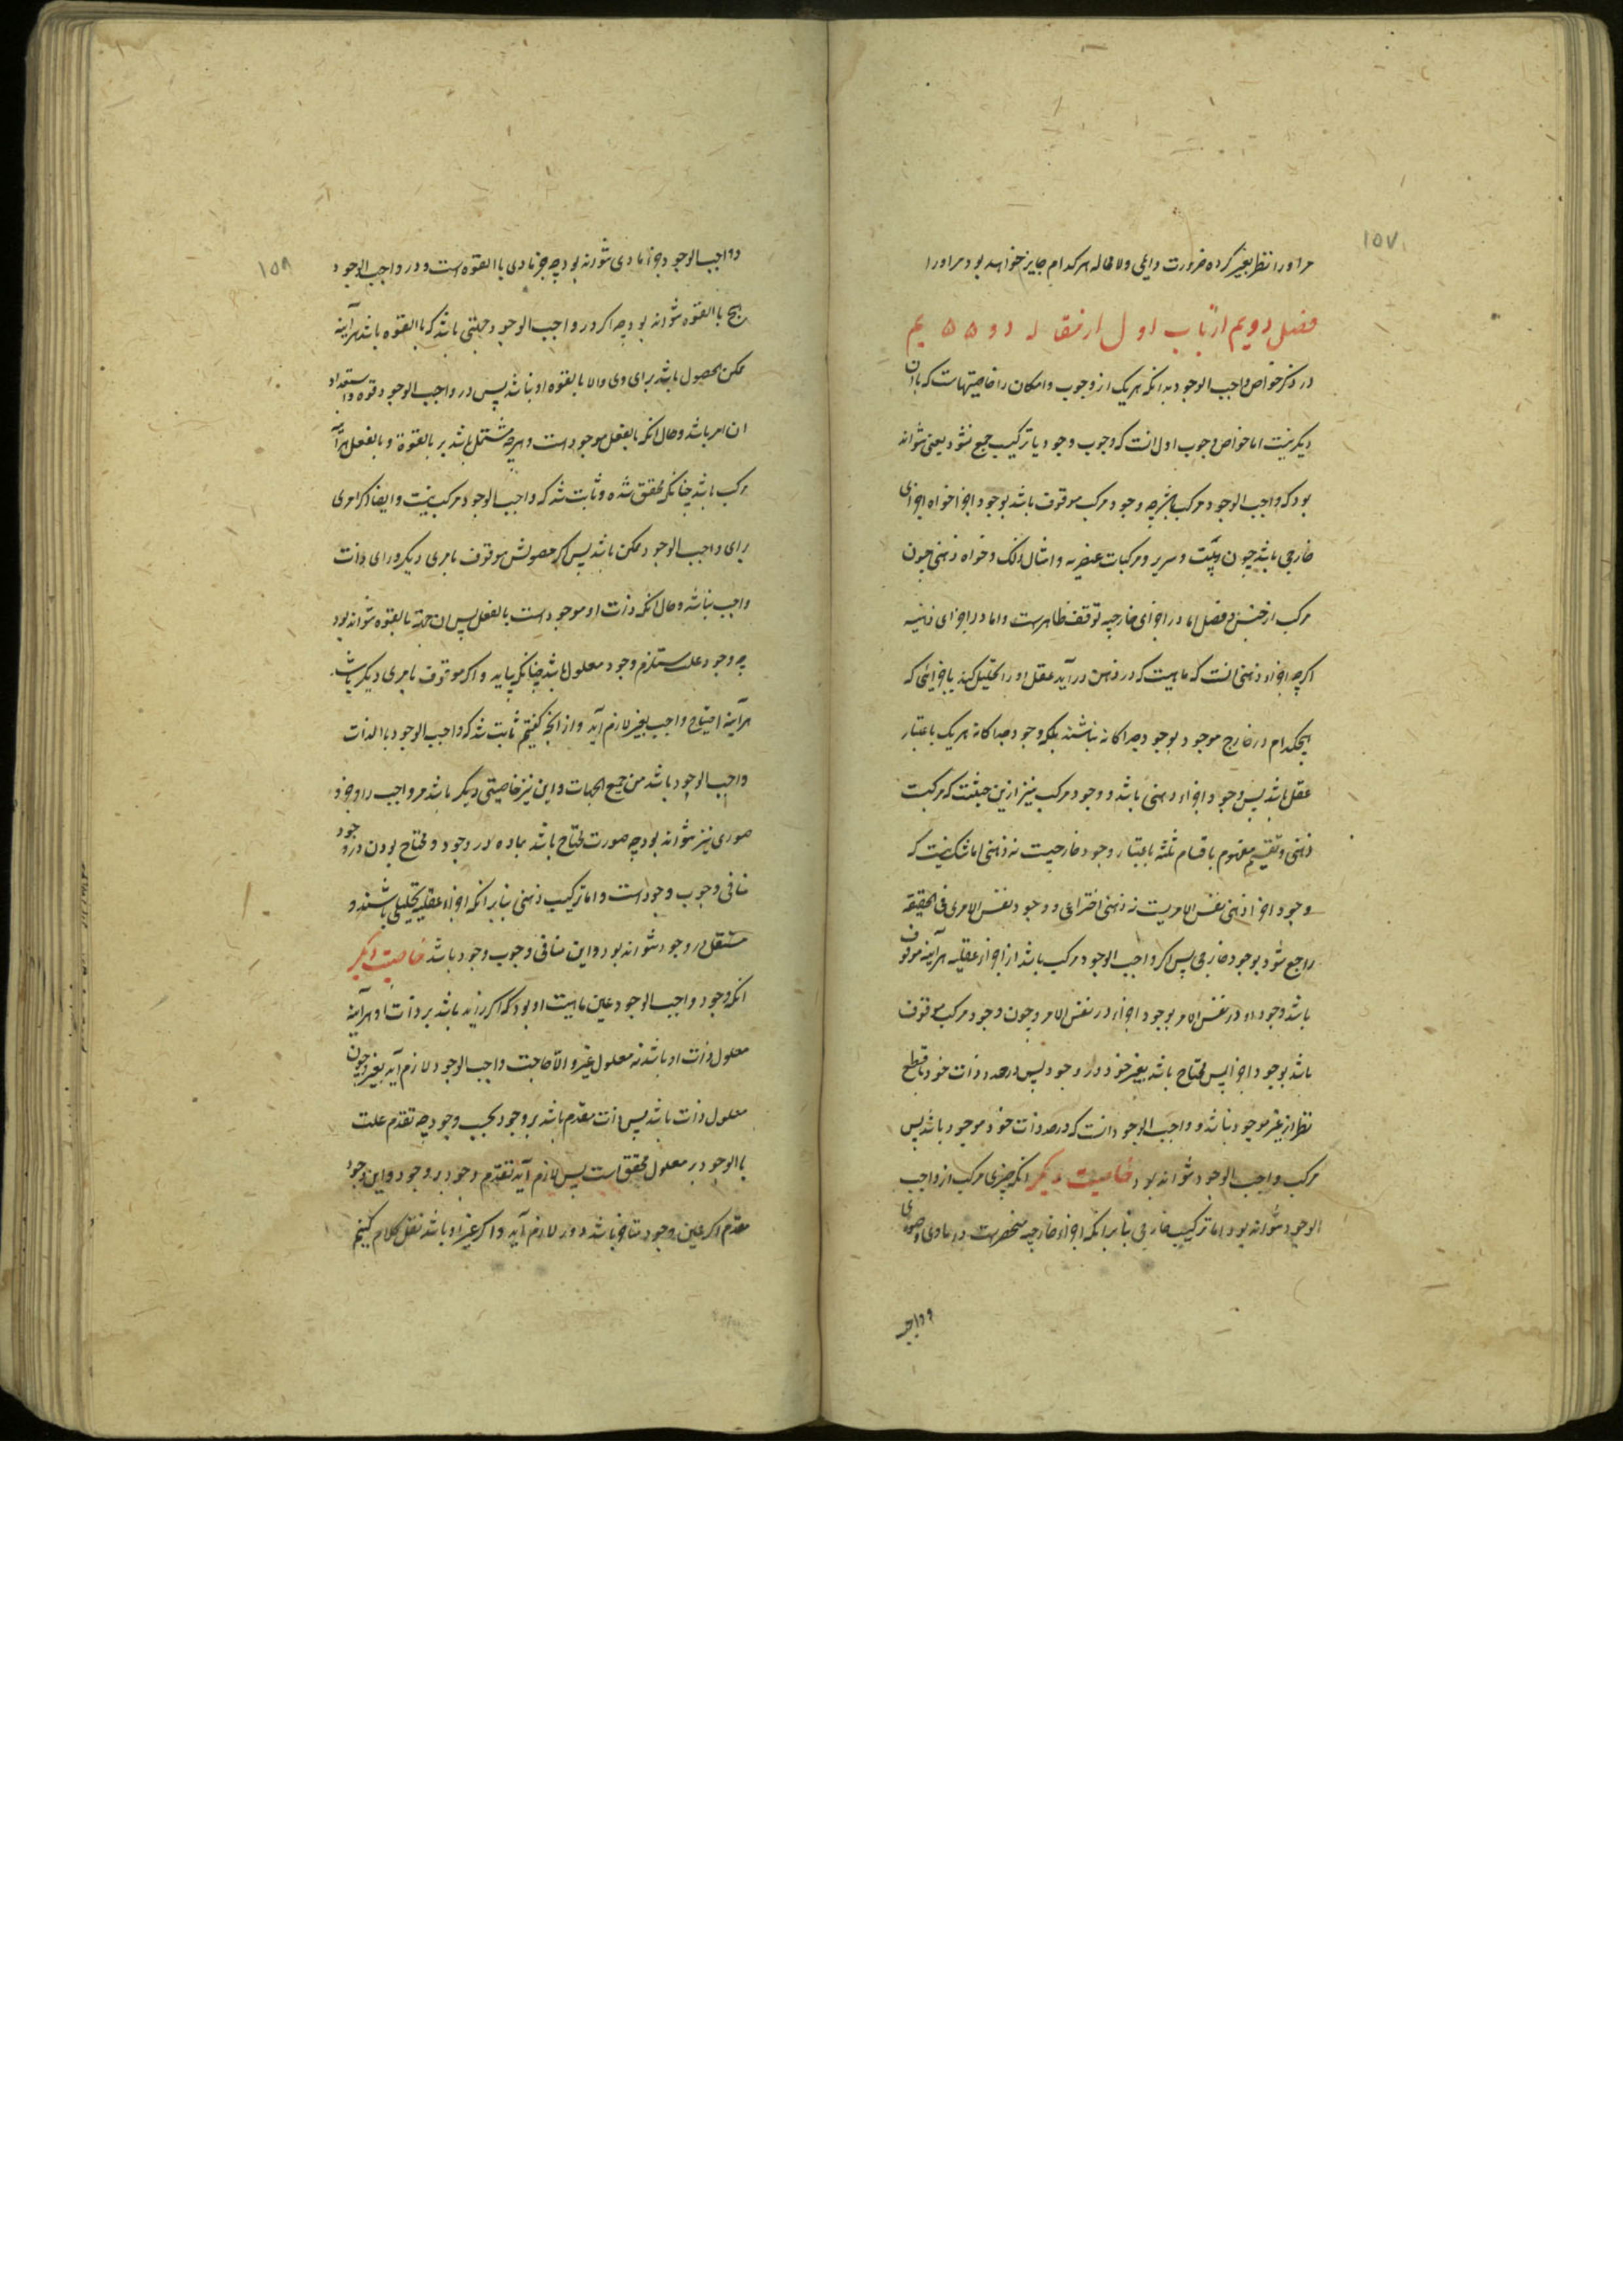 ۱۵۷
مر او را نظر بغیر کرده ضرورت داعی ولا محاله هر کدام جایز خواهد بود مر او را
فصل دویم از باب اول از مقاله دویم
در ذکر خواص واجب الوجود بدانکه هر یک از وجوب و امکان را خاصیتهاست که با آن
دیگر نیست اما خواص وجوب اول انست که وجوب وجود با ترکیب جمع نشود یعنی نتواند
بود که واجب الوجود مرکب باشد چه وجود مرکب موقوف باشد بوجود اجزا خواه اجزای
خارجی باشد چون بیت و سریر و مرکبات عنصریه و امثال ذلک و خواه ذهنی چون
مرکب از جنس و فصل اما در اجزای خارجیه توقف ظاهر است و اما در اجزای ذهنیه
اگرچه اجزاء ذهنی انست که ماهیت که در ذهن در آید عقل او را تحلیل کند باجزائی که
هیچکدام در خارج موجود بوجود جداگانه نباشند بلکه وجود جداگانه هر یک باعتبار
عقل باشد پس وجود اجزاء ذهنی باشد و وجود مرکب نیز ازین حیثیت که مرکبست
ذهنی و تقسیم مفهوم باقسام ثلثه باعتبار وجود خارجیست نه ذهنی اما شک نیست که
وجود اجزا ذهنی نفس الامریست نه ذهنی اختراعی و وجود نفس الامری فی الحقیقه
راجع شود بوجود خارجی پس اگر واجب الوجود مرکب باشد از اجزاء عقلیه هر آینه موقوف
باشد وجود او در نفس الامر بوجود اجزاء در نفس الامر و چون وجود مرکب موقوف
باشد بوجود اجزا پس محتاج باشد بغیر خود در وجود پس در حد ذات خود با قطع
نظر از غیر موجود نباشد و واجب الوجود انست که در حد ذات خود موجود باشد پس
مرکب واجب الوجود نتواند بود خاصیت دیگر انکه چیزی مرکب از واجب
الوجود نتواند بود اما ترکیب خارجی بنابر انکه اجزاء خارجیه منحصر است در مادی و صوری
و واجب
۱۵۸
و واجب الوجود جزء مادی نتواند بود چه جزء مادی باالقوه است و در واجب الوجود
هیچ باالقوه نتواند بود چه اگر در واجب الوجود جهتی باشد که باالقوه باشد هر آینه
ممکن الحصول باشد برای وی والا بالقوه او نباشد پس در واجب الوجود قوه و استعداد
ان امر باشد و حال انکه بالفعل موجود است و هرچه مشتمل باشد بر بالقوة و بالفعل هر آینه
مرکب باشد چنانکه محقق شده و ثابت شد که واجب الوجود مرکب نیست و ایضا اگر امری
برای واجب الوجود ممکن باشد پس اگر حصولش موقوف بامری دیگر ورای ذات
واجب نباشد و حال انکه ذات او موجود است بالفعل پس ان جهة بالقوه نتواند بود
چه وجود علت مستلزم وجود معلول باشد چنانکه بیاید و اگر موقوف بامری دیگر باشد
هر آینه احتیاج واجب بغیر لازم آید و از انچه گفتیم ثابت شد که واجب الوجود باالذات
واجب الوجود باشد من جمیع الجهات و این نیز خاصیتی دیگر باشد مر واجب را و جزء
صوری نیز نتواند بود چه صورت محتاج باشد بماده در وجود و محتاج بودن در وجود
منافی وجوب وجود است و اما ترکیب ذهنی بنابر انکه اجزاء عقلیه تحلیلی باشند و
مستقل در وجود نتواند بود و این منافی وجوب وجود باشد خاصیت دیگر
انکه وجود واجب الوجود عین ماهیت او بود که اگر زاید باشد بر ذات او هر آینه
معلول ذات او باشد نه معلول غیر والا حاجت واجب الوجود لازم آید بغیر و چون
معلول ذات باشد پس ذات مقدم باشد بر وجود بحسب وجود چه تقدم علت
باالوجود بر معلول محقق است پس لازم آید تقدم وجود بر وجود و این وجود
مقدم اگر عین وجود متاخر باشد دور لازم آید و اگر غیر او باشد نقل کلام کنیم